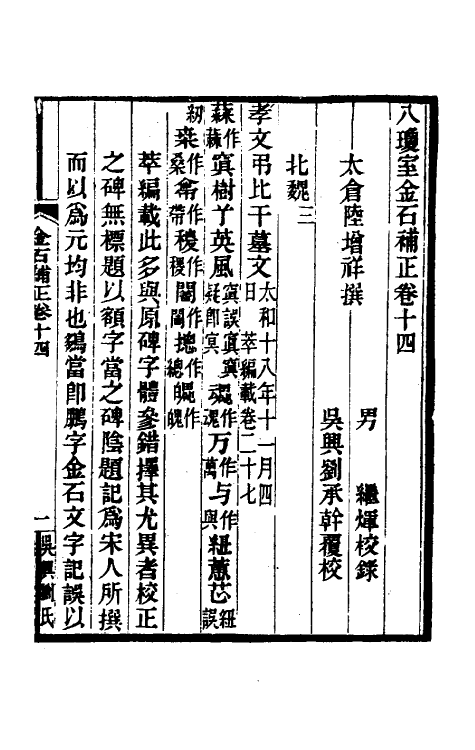 八瓊室金石補正卷十四
太倉陸增祥撰
男 繼煇校錄
吳興劉承幹覆校
北魏三
孝文弔比干墓文太和十八年十一月四日 萃編載卷二十七
蘇作蘓寘樹丫英風寘誤寘寘疑卽冥魂作魂万作萬与作與紐蕙芯紐誤
紉桒作桑㡀作帶稷作稷閶作閶摠作總䰟作魄
萃編載此多與原碑字體參錯擇其尤異者校正
之碑無標題以額字當之碑陰題記爲宋人所撰
而以爲元均非也鵶當卽鵬字金石文字記誤以
金石補正卷十四
一
吳興劉氏